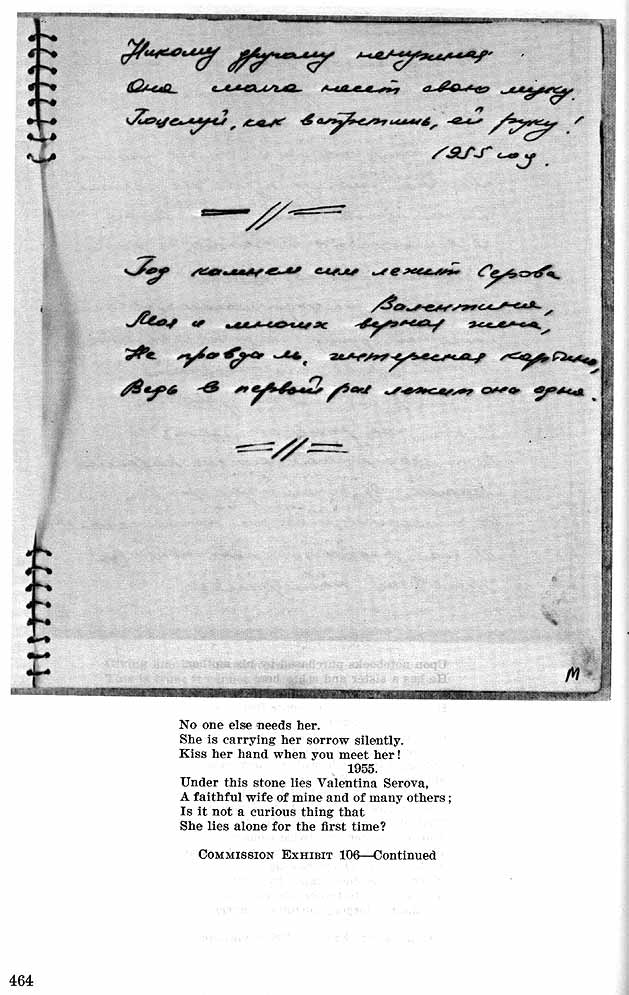 Никому другому ненужная
Она молча несёт свою муку.
Поцелуй, как встретишь, ей руку!
1955 год.
Под камнем сим лежит Серова
Валентина,
Моя и многих верная жена,
Не правда ль, интересная картина,
Ведь в первой раз лежит она одна.
M
No one else needs her.
She is carrying her sorrow silently.
Kiss her hand when you meet her!
1955.
Under this stone lies Valentina Serova,
A faithful wife of mine and of many others;
Is it not a curious thing that
She lies alone for the first time?
COMMISSION EXHIBIT 106—Continued
464